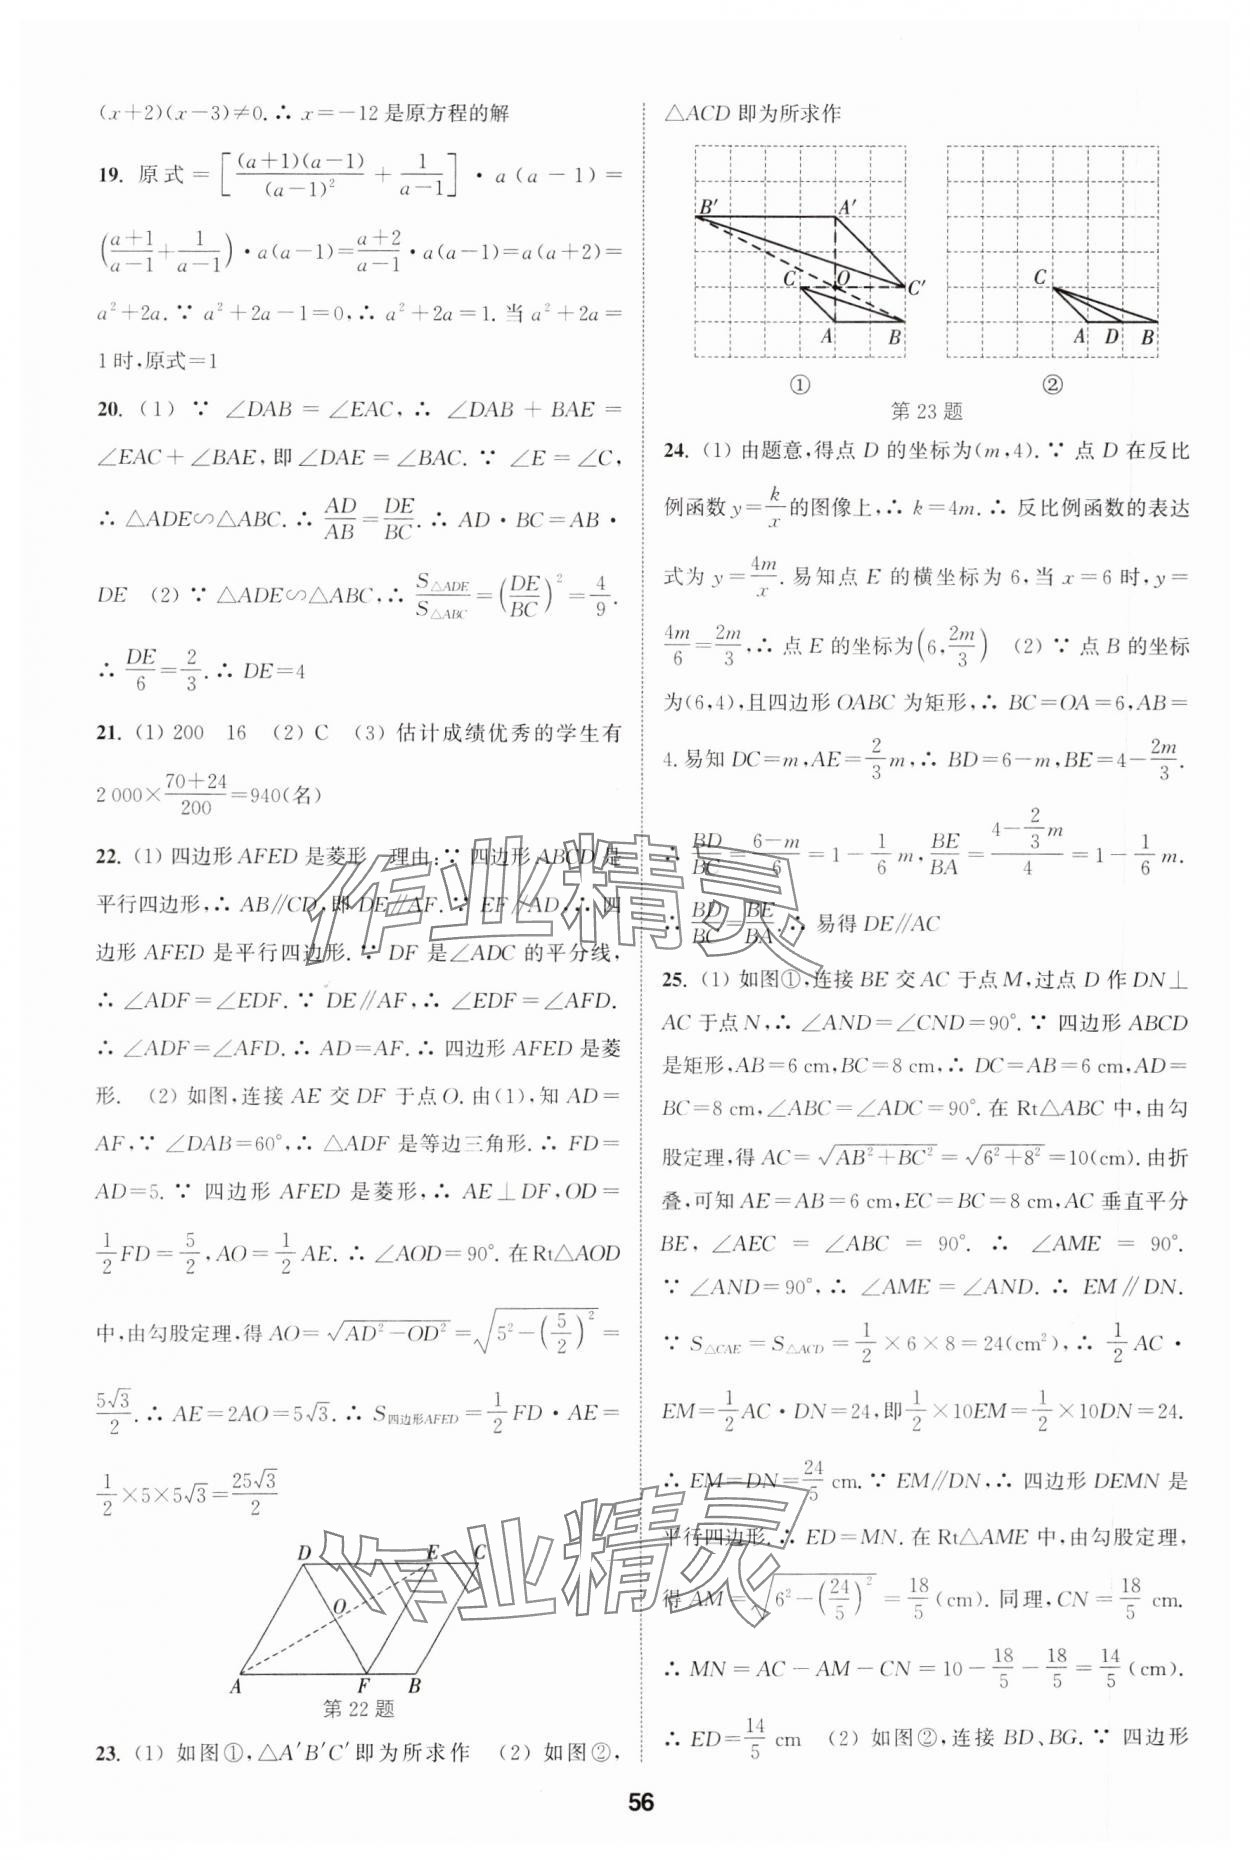 (x+2)(x-3)≠0.∴ x=-12是原方程的解
19. 原式=[(a+1)(a-1)/(a-1)²+1/(a-1)]·a(a-1)=
((a+1)/(a-1)+1/(a-1))·a(a-1)=(a+2)/(a-1)·a(a-1)=a(a+2)=
a²+2a.∵ a²+2a-1=0,∴ a²+2a=1.当a²+2a=
1时,原式=1
20. (1) ∵ ∠DAB=∠EAC,∴ ∠DAB+BAE=
∠EAC+∠BAE,即∠DAE=∠BAC.∵ ∠E=∠C,
∴ △ADE∽△ABC.∴ AD/AB=DE/BC.∴ AD·BC=AB·
DE (2) ∵ △ADE∽△ABC,∴ S△ADE/S△ABC=(DE/BC)²=4/9.
∴ DE/6=2/3.∴ DE=4
21. (1) 200 16 (2) C (3) 估计成绩优秀的学生有
2 000×(70+24)/200=940(名)
22. (1) 四边形AFED是菱形 理由:∵ 四边形ABCD是
平行四边形,∴ AB∥CD,即DE∥AF.∵ EF∥AD,∴ 四
边形AFED是平行四边形.∵ DF是∠ADC的平分线,
∴ ∠ADF=∠EDF.∵ DE∥AF,∴ ∠EDF=∠AFD.
∴ ∠ADF=∠AFD.∴ AD=AF.∴ 四边形AFED是菱
形. (2) 如图,连接AE交DF于点O.由(1),知AD=
AF,∵ ∠DAB=60°,∴ △ADF是等边三角形.∴ FD=
AD=5.∵ 四边形AFED是菱形,∴ AE⊥DF,OD=
1/2FD=5/2,AO=1/2AE.∴ ∠AOD=90°.在Rt△AOD
中,由勾股定理,得AO=√(AD²-OD²)=√(5²-(5/2)²)=
5√3/2.∴ AE=2AO=5√3.∴ S四边形AFED=1/2FD·AE=
1/2×5×5√3=25√3/2
D E C
O
A F B
第22题
23. (1) 如图①,△A′B′C′即为所求作 (2) 如图②,
△ACD即为所求作
B′ A′
C O C′
A B
①
C
A D B
②
第23题
24. (1) 由题意,得点D的坐标为(m,4).∵ 点D在反比
例函数y=k/x的图像上,∴ k=4m.∴ 反比例函数的表达
式为y=4m/x.易知点E的横坐标为6,当x=6时,y=
4m/6=2m/3,∴ 点E的坐标为(6,2m/3) (2) ∵ 点B的坐标
为(6,4),且四边形OABC为矩形,∴ BC=OA=6,AB=
4.易知DC=m,AE=2/3m,∴ BD=6-m,BE=4-2m/3.
∴ BD/BC=(6-m)/6=1-1/6m,BE/BA=(4-2/3m)/4=1-1/6m.
∴ BD/BC=BE/BA.∴ 易得DE∥AC
25. (1) 如图①,连接BE交AC于点M,过点D作DN⊥
AC于点N,∴ ∠AND=∠CND=90°.∵ 四边形ABCD
是矩形,AB=6 cm,BC=8 cm,∴ DC=AB=6 cm,AD=
BC=8 cm,∠ABC=∠ADC=90°.在Rt△ABC中,由勾
股定理,得AC=√(AB²+BC²)=√(6²+8²)=10(cm).由折
叠,可知AE=AB=6 cm,EC=BC=8 cm,AC垂直平分
BE,∠AEC=∠ABC=90°.∴ ∠AME=90°.
∵ ∠AND=90°,∴ ∠AME=∠AND.∴ EM∥DN.
∵ S△CAE=S△ACD=1/2×6×8=24(cm²),∴ 1/2AC·
EM=1/2AC·DN=24,即1/2×10EM=1/2×10DN=24.
∴ EM=DN=24/5 cm.∵ EM∥DN,∴ 四边形DEMN是
平行四边形.∴ ED=MN.在Rt△AME中,由勾股定理,
得AM=√(6²-(24/5)²)=18/5(cm).同理,CN=18/5 cm.
∴ MN=AC-AM-CN=10-18/5-18/5=14/5(cm).
∴ ED=14/5 cm (2) 如图②,连接BD、BG.∵ 四边形
56
作业精灵
作业精灵